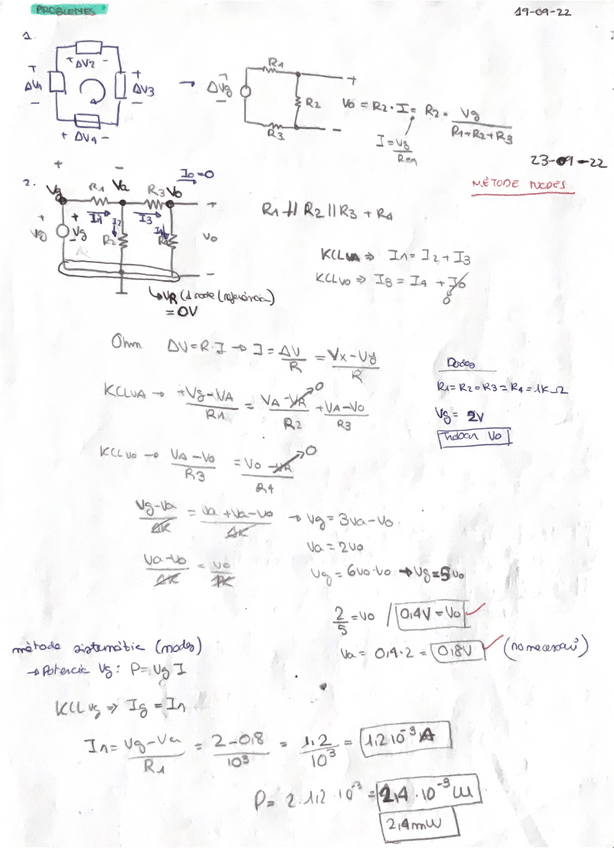 PROBLEMES
19-09-22
1.
+ ΔV2 -
+ ΔV1 -
+ ΔV3 -
+ ΔV4 -
→ ΔVg
R1
R2
R3
+
-
Vo = R2 · I = R2 · Vg / (R1+R2+R3)
I = Vg / Req
23-09-22
MÈTODE NODES
2.
+ -
Vg R1 Va R3 Vo
Io=0
I1 I2 I3
+ Vg - R2 Vo
VR (1 node (referència)
= 0V
R1 ∦ R2 || R3 + R4
KCL VA ⇒ I1 = I2 + I3
KCL Vo ⇒ I3 = I4 + Io
0
Ohm ΔV = R·I → I = ΔV/R = (Vx - Vy)/R
Dades
R1 = R2 = R3 = R4 = 1KΩ
Vg = 2V
Trobar Vo
KCL VA → (+Vg - VA)/R1 = (VA - VR)/R2 + (VA - Vo)/R3
0
KCL Vo → (VA - Vo)/R3 = (Vo - VR)/R4
0
(Vg - Va)/1K = (Va + Va - Vo)/1K → Vg = 3Va - Vo
Va = 2Vo
(Va - Vo)/1K = Vo/1K
Vg = 6Vo - Vo → Vg = 5Vo
2/5 = Vo / 0,4V = Vo
Va = 0,4 · 2 = 0,8V (no necessari)
mètode sistemàtic (nodes)
→ Potència Vg: P = Vg I
KCL Vg ⇒ Ig = I1
I1 = (Vg - Va)/R1 = (2 - 0,8)/10³ = 1,2/10³ = 1,2·10⁻³ A
P = 2 · 1,2 · 10⁻³ = 2,4 · 10⁻³ W
2,4 mW